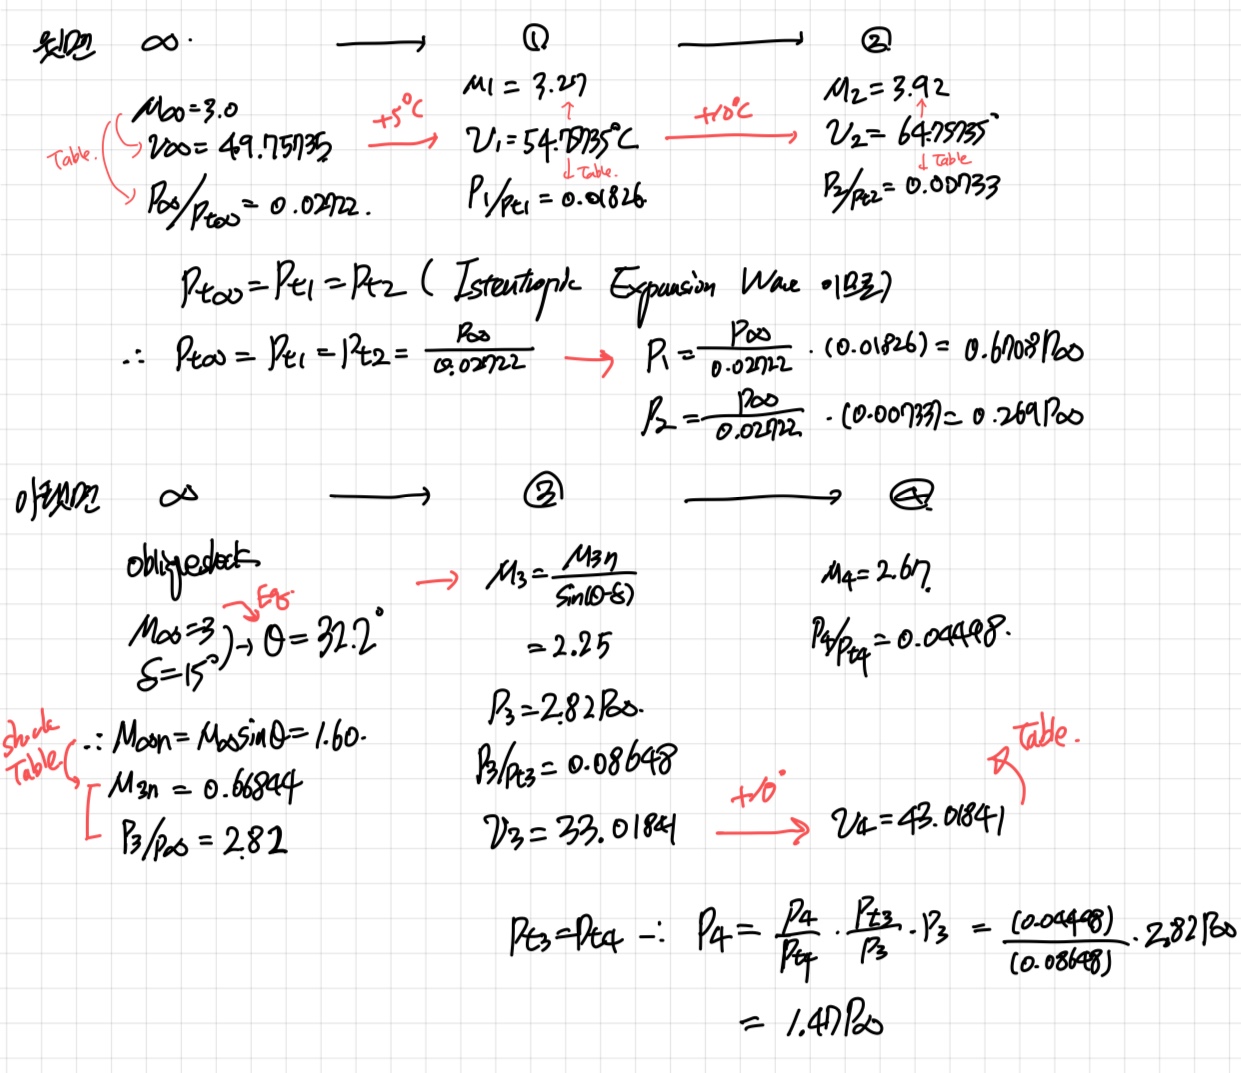 윗면 ∞ → ① → ②
M∞=3.0
ν∞=49.75735
P∞/Pt∞=0.02722.
Table.
+5°C
M1=3.27
ν1=54.75735°C
↓ Table.
P1/Pt1=0.01826
+10°C
M2=3.92
ν2=64.75735°
↓ Table
P2/Pt2=0.00733
Pt∞=Pt1=Pt2 (Istentropic Expansion Wave 이므로)
∴ Pt∞=Pt1=Pt2=P∞/0.02722 → P1=P∞/0.02722·(0.01826)=0.6708P∞
P2=P∞/0.02722·(0.00733)=0.269P∞
아랫면 ∞ → ③ → ④
M∞=3
δ=15°
→ θ=32.2°
Eq.
∴ M∞n=M∞sinθ=1.60.
shock
Table
M3n=0.66844
P3/P∞=2.82
→ M3=M3n/sin(θ-δ)
=2.25
P3=2.82P∞.
P3/Pt3=0.08648
ν3=33.01841
+10°
M4=2.67.
P4/Pt4=0.04498.
Table.
ν4=43.01841
Pt3=Pt4 ∴ P4=P4/Pt4·Pt3/P3·P3=(0.04498)/(0.08648)·2.82P∞
=1.47P∞